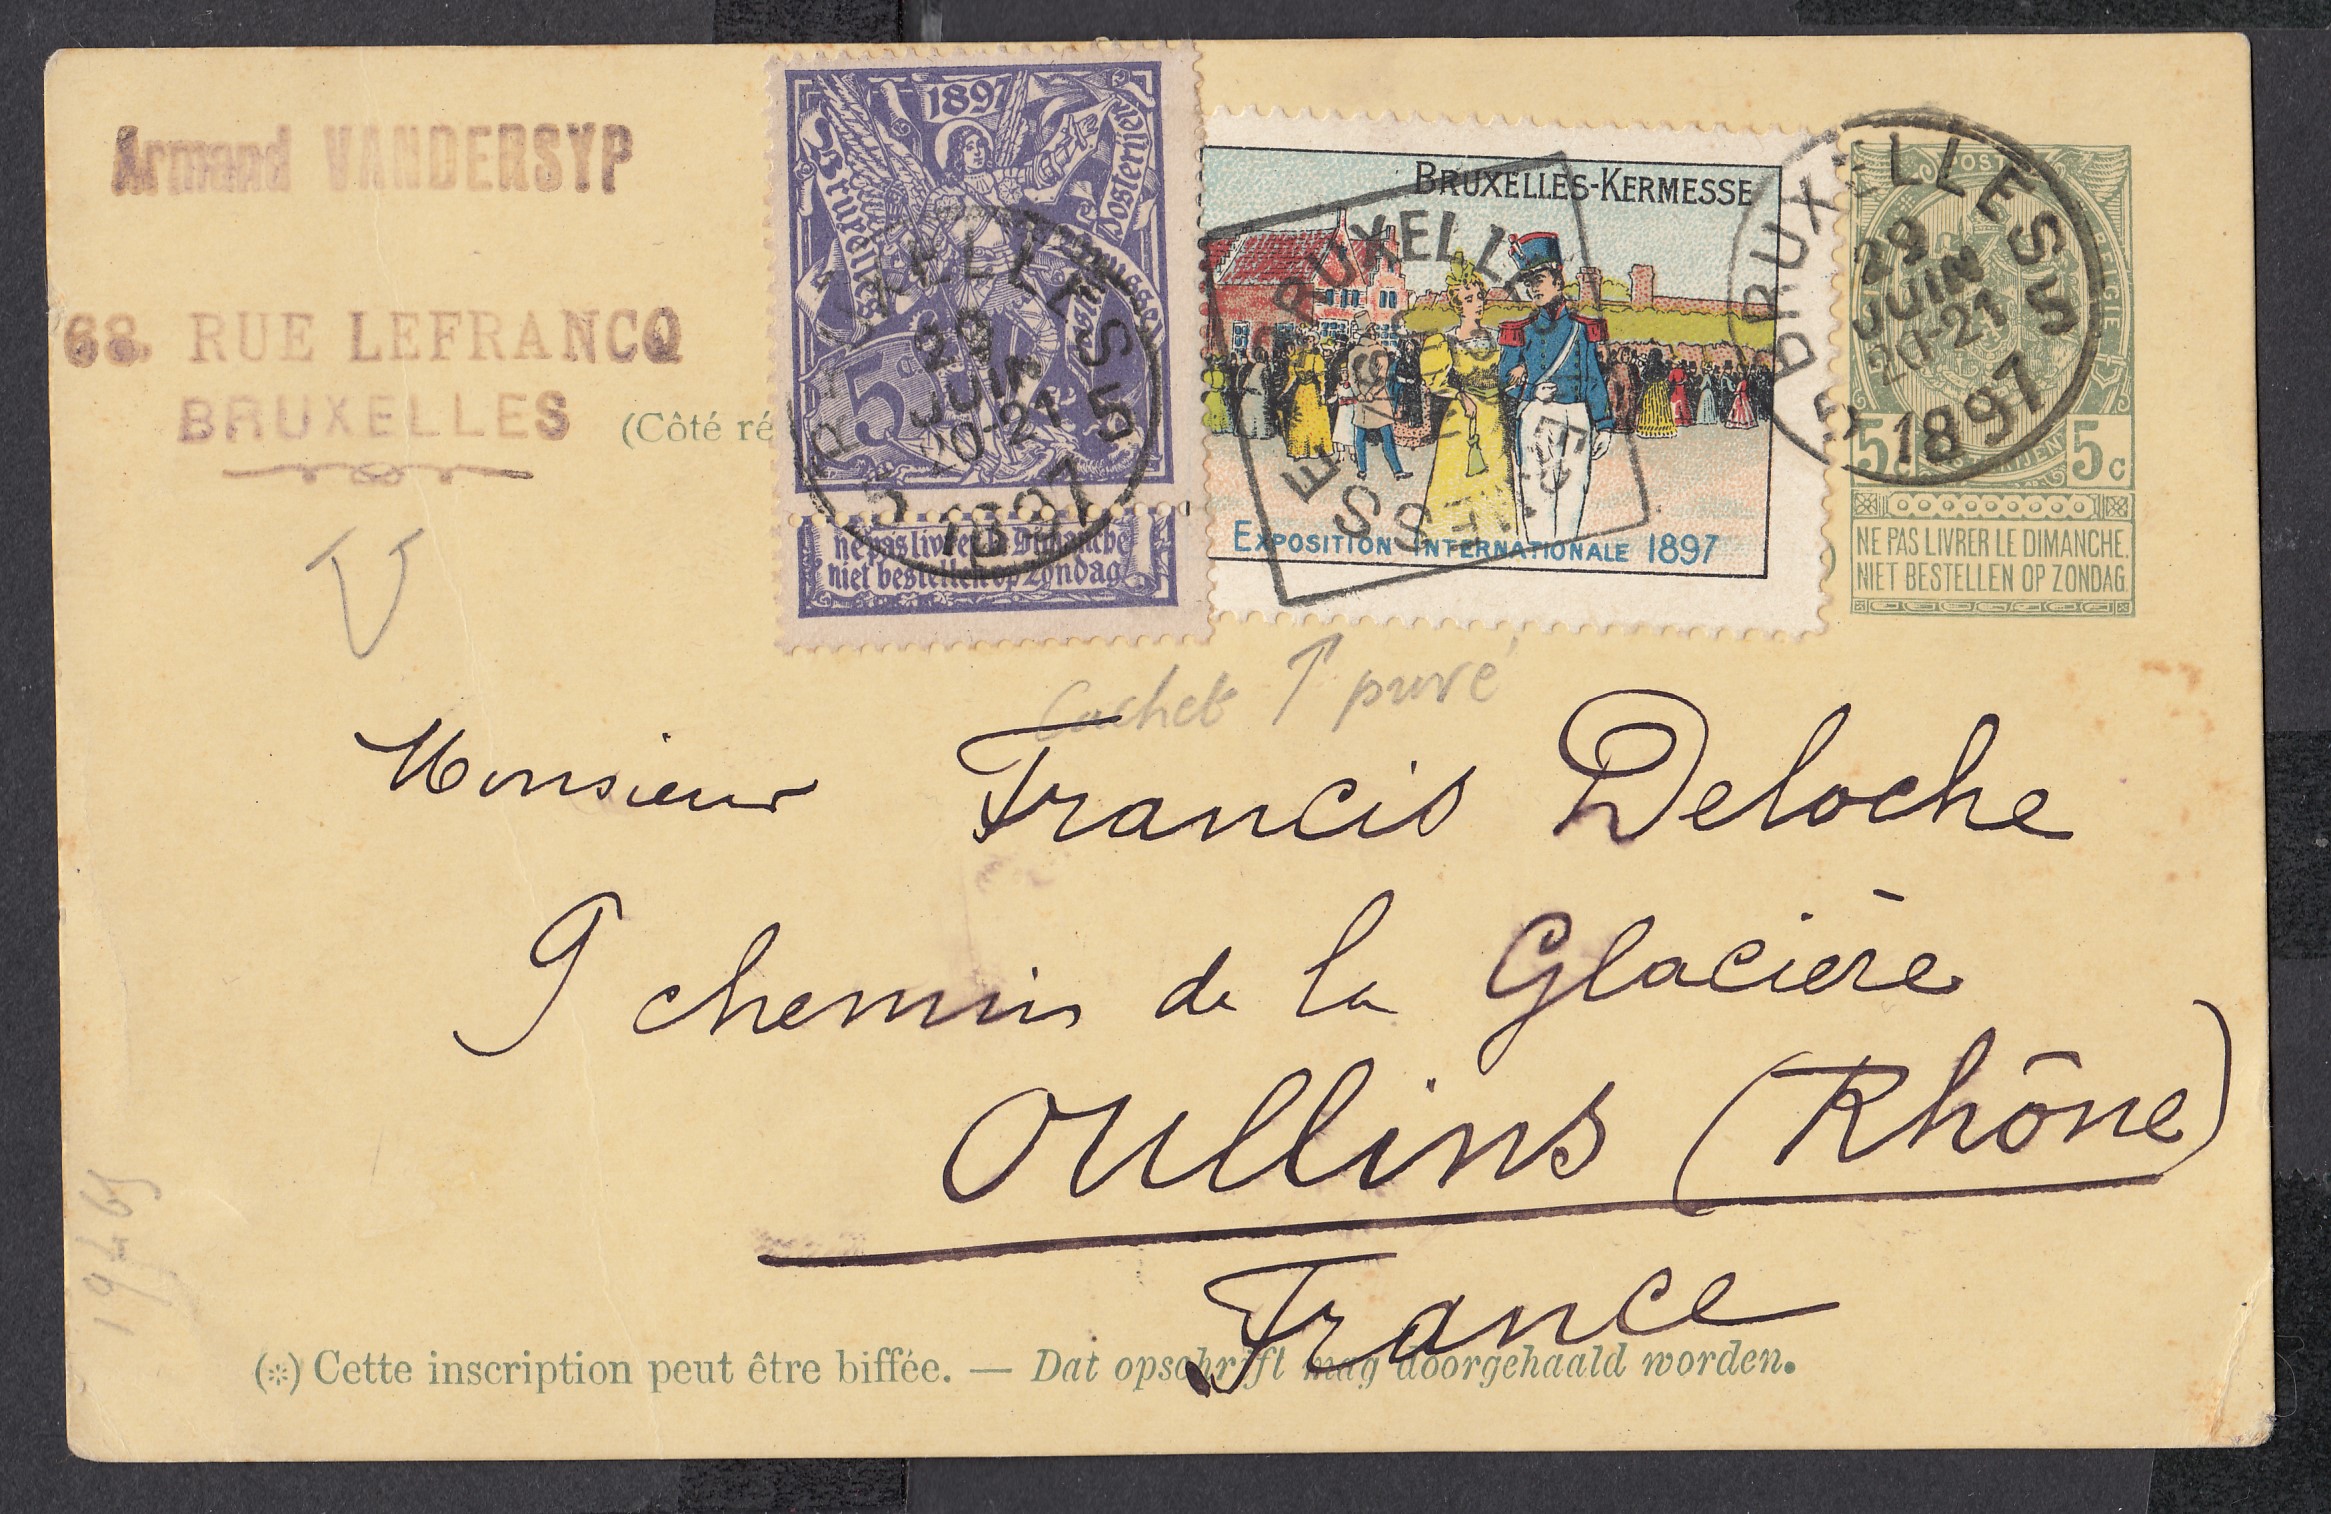 Armand VANDERSYP
68. RUE LEFRANCQ
BRUXELLES
(Côté ré
1897
Bruxelles
5
ne pas livrer le Dimanche
niet bestellen op Zondag
BRUXELLES 5
29
JUIN
20-21
5 1897
BRUXELLES-KERMESSE
BRUXELLES
KERMESSE
EXPOSITION INTERNATIONALE 1897
BRUXELLES 5
29
JUIN
20-21
5 1897
POST
BELGIE
5c 5c
NE PAS LIVRER LE DIMANCHE.
NIET BESTELLEN OP ZONDAG
cachet ↑ privé
Monsieur Francis Deloche
9 chemin de la Glacière
Oullins (Rhône)
France
(*) Cette inscription peut être biffée. — Dat opschrift mag doorgehaald worden.